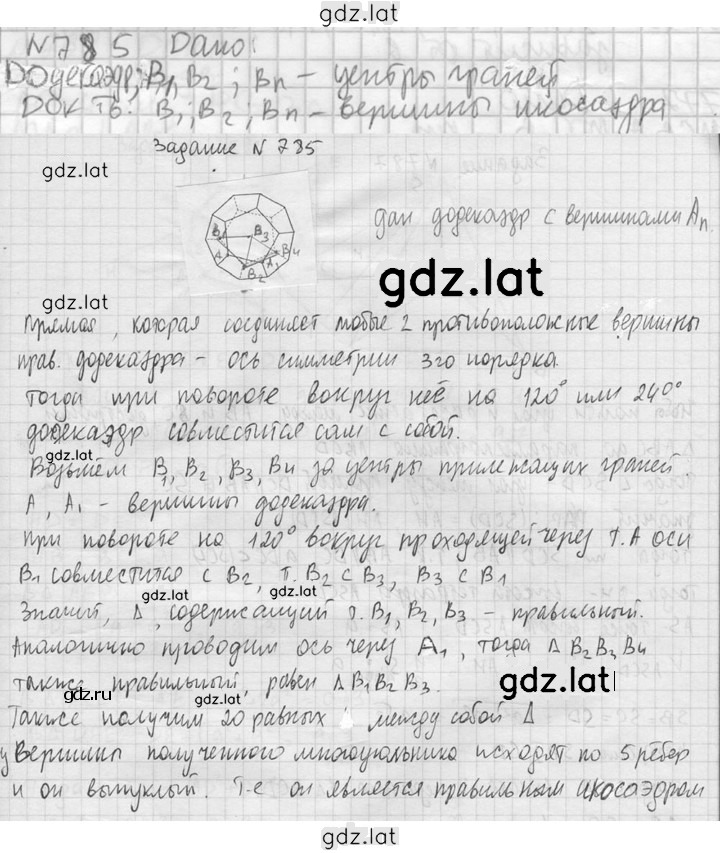 gdz.lat
N785 Дано:
Додекаэдр; B1, B2; Bn – центры граней
Док ть: B1; B2; Bn – вершины икосаэдра
Задание N 785
gdz.lat
B1 B3
A A1 B4
B2
дан додекаэдр с вершинами An.
gdz.lat
gdz.lat
Прямая, которая соединяет любые 2 противоположные вершины
прав. додекаэдра – ось симметрии 3го порядка.
Тогда при повороте вокруг неё на 120° или 240°
додекаэдр совместится сам с собой.
Возьмём B1, B2, B3, B4 за центры прилежащих граней.
A, A1 – вершины додекаэдра.
При повороте на 120° вокруг проходящей через т. A оси
B1 совместится с B2, т. B2 с B3, B3 с B1
gdz.lat
Значит, Δ, содержащий т. B1, B2, B3 – правильный.
Аналогично проводим ось через A1, тогда Δ B2B3B4
также правильный, равен Δ B1B2B3.
gdz.ru
gdz.lat
Также получим 20 равных между собой Δ
у Вершины полученного многоугольника исходят по 5 рёбер
и он выпуклый. Т-е он является правильным икосаэдром
gdz.lat